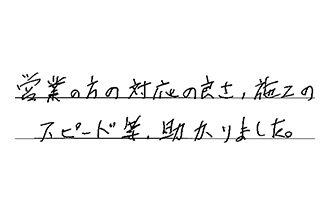 営業の方の対応の良さ,施工の
スピード等,助かりました。